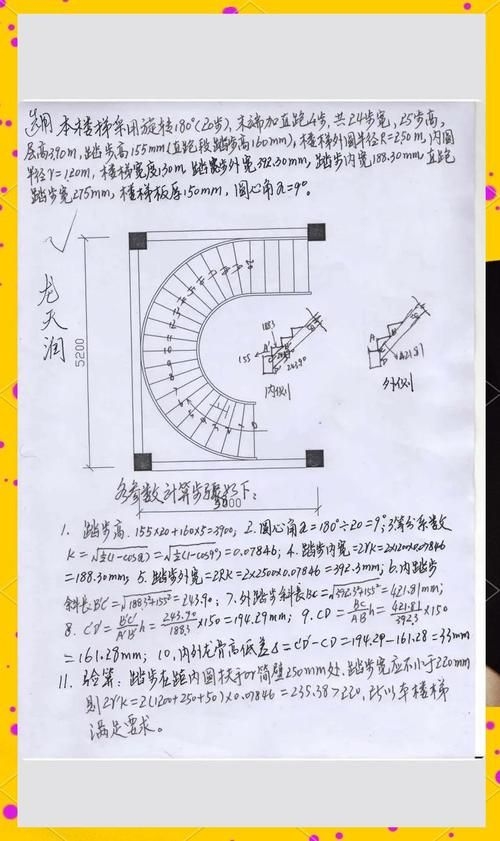 说明 本楼梯采用旋转180°(20步),末端加直跑4步,共24步宽,25步高,
层高3.90m,踏步高155mm(直跑段踏步高160mm),楼梯外圆半径R=2.50m,内圆
半径r=1.20m,楼梯宽度1.30m,踏步外宽392.30mm,踏步内宽188.30mm,直跑
踏步宽275mm,楼梯板厚150mm,圆心角α=9°。
龙天润
5200
188.3
155
243.90
内侧
421.81
外侧
5000
各参数计算步骤如下:
1. 踏步高:155×20+160×5=3900; 2.圆心角α=180°÷20=9°;3.等分系数
K=√½(1-cosα)=√½(1-cos9°)=0.07846; 4.踏步内宽=2rK=2×1200×0.07846
=188.30mm; 5.踏步外宽=2RK=2×2500×0.07846=392.3mm; 6.内踏步
斜长B'C'=√188.3²+155²=243.90; 7.外踏步斜长BC=√392.3²+155²=421.81mm;
8. C'D'=B'C'/A'B' h=243.90/188.3×150=194.29mm; 9. CD=BC/AB h=421.81/392.3×150
=161.28mm; 10,内外龙骨高低差Δ=C'D'-CD=194.29-161.28=33mm
11. 验算:踏步在距内圆扶手or筒壁250mm处,踏步宽应不小于220mm
则2rK=2(1200+250+50)×0.07846=235.38>220,所以本楼梯
满足要求。